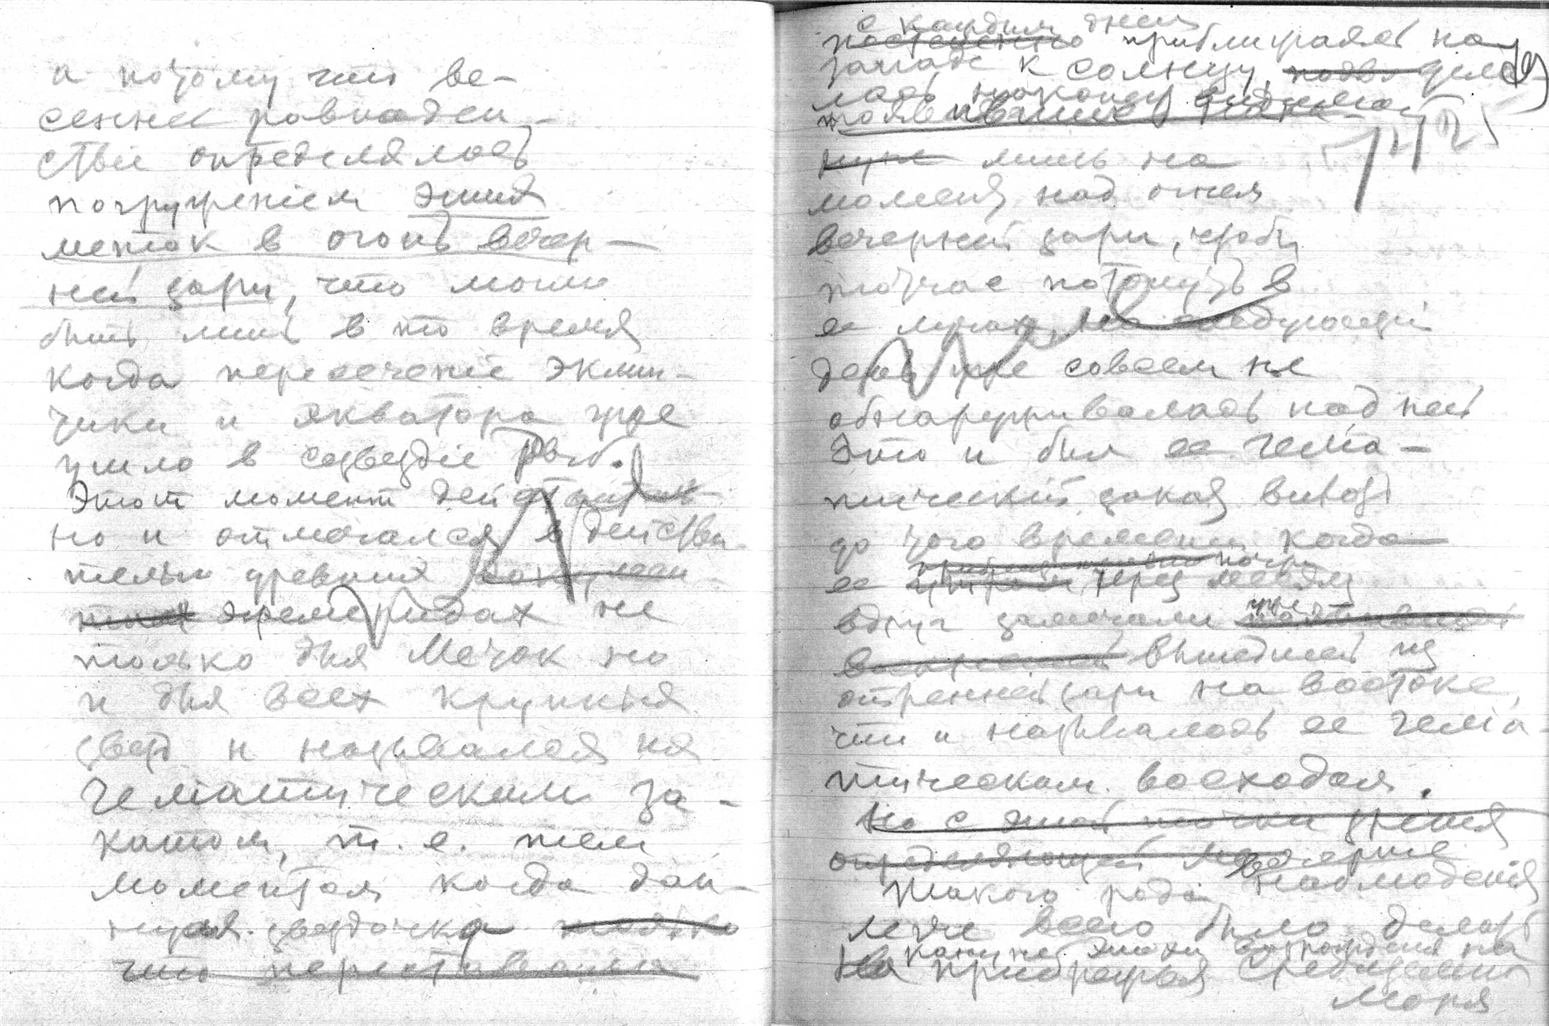 а потому что ве-
сеннее равноден-
ствие определялось
погружением этих
меток в огонь вечер-
ней зари, что могло
быть лишь в то время
когда пересечение эклип-
тики и экватора уже
ушло в созвездие Рыб.
Этот момент действитель-
но и отмечался в действи-
тельно древних
эфемеридах не
только для Мечок но
и для всех крупных
звезд и назывался их
гелиатическим за-
катом, т. е. тем
моментом когда дан-
ная звездочка только
что переставала
с каждым днем
постепенно приближаясь на
западе к солнцу,
лась наконец
лишь на
момент над огнем
вечерней зари, чтобы
тотчас потонуть в
ее лучах, на следующий
день уже совсем не
обнаруживалась над ней
Это и был ее гелиа-
тический закат вплоть
до того времени когда
ее через месяц
вдруг замечали уже
вышедшей из
утренней зари на востоке,
что и называлось ее гелиа-
тическим восходом.
Но с этой точки зрения
определяющей
Такого рода наблюдения
легче всего было делать
на
на прибрежья Средиземного
моря